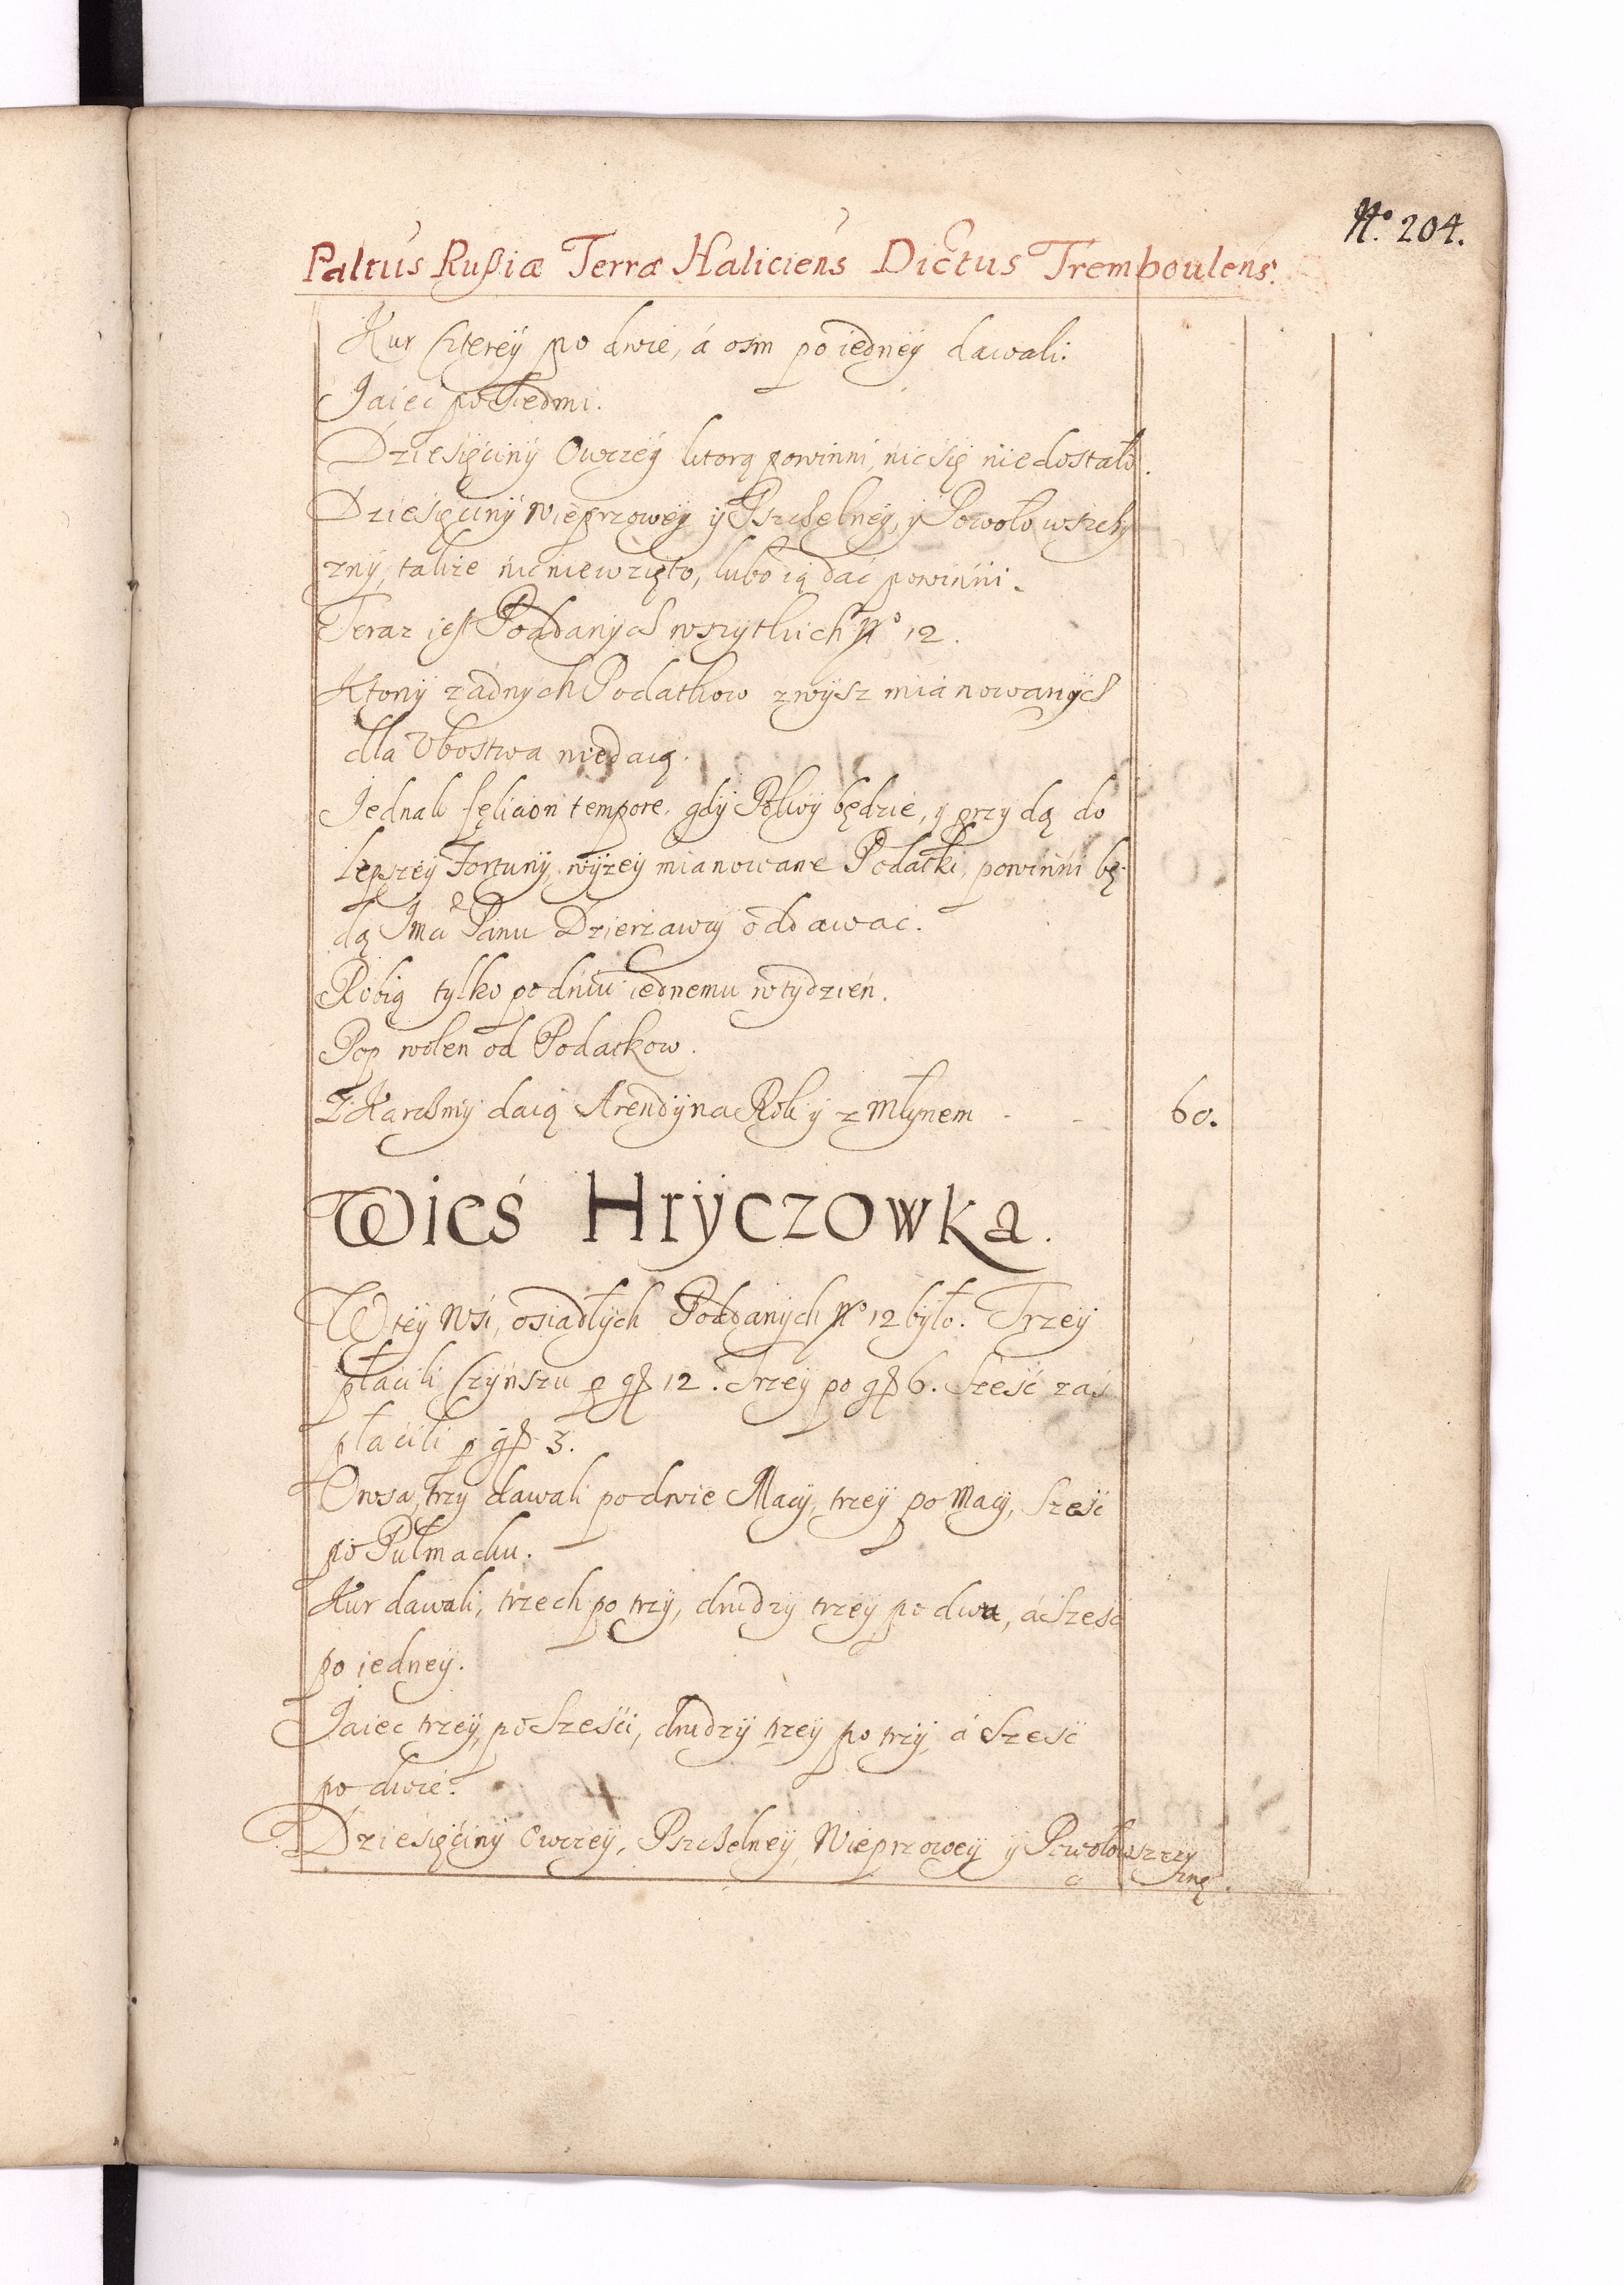 No. 204.
Paltus Rußiæ Terræ Haliciens Dictus Tremboulens:
Kur Czterey po dwie, á osm po iedney dawali:
Jaiec po Siedmi.
Dziesięciny Owczey ktorą powinni, nic się niedostało.
Dziesięciny Wieprzowey y Pszczelney, y Powołowszczy
zny, także nic niewzięto, lubo ią dać powinni.
Teraz iest Poddanych wszytkich No 12.
Ktory żadnych Podatkow zwysz mianowanych
dla Vbostwa niedaią.
Jednak feliciori tempore, gdy Pokoy będzie, y przydą do
Lepszey Fortuny, wyżey mianowane Podatki, powinni bę-
dą Jmci Panu Dzierżawcy oddawać.
Robią tylko po dniu iednemu w tydzień.
Pop wolen od Podatkow.
Z Karczmy daią Arendy na Rok y z Młynem - - 60.
Wieś Hryczowka.
W tey Wsi, osiadłych Poddanych No 12 było. Trzey
płacili Czynszu p gr 12. Trzey po gr 6. Sześć zaś
płacili p gr 3.
Owsa, trzy dawali po dwie Macy, trzey po Macy, Sześć
po Pułmacku.
Kur dawali, trzech po trzy, drudzy trzey po dwu, á Sześć
po iedney.
Jaiec trzey, po Sześći, drudzy trzey po trzy á Sześć
po dwie.
Dziesięćiny Owczey, Pszczelney, Wieprzowey y Powołowszczy
znę